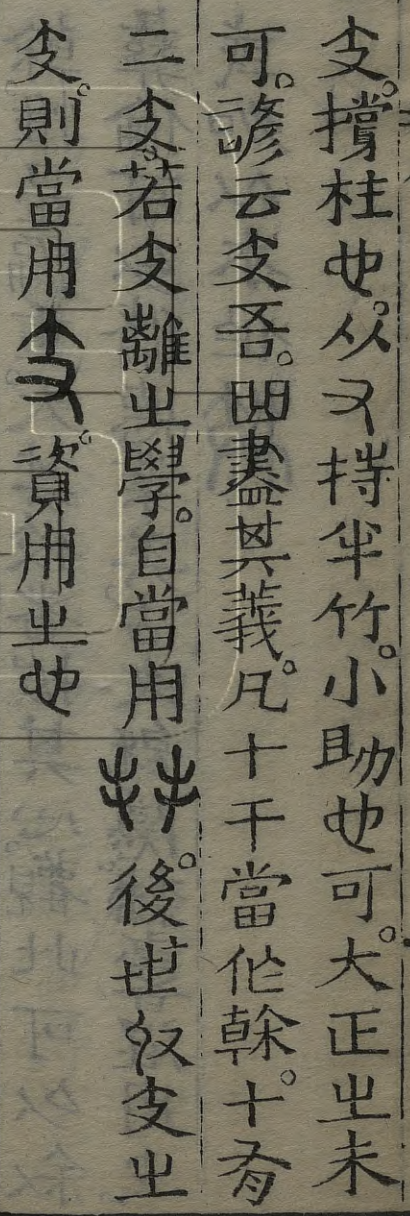 支。撐柱也。从又持半竹。小助也可。大正之未
可。諺云支吾。曲盡其義。凡十干當作榦。十有
二支。若支離之學。自當用 後世収支之
支。則當用支。資用之也